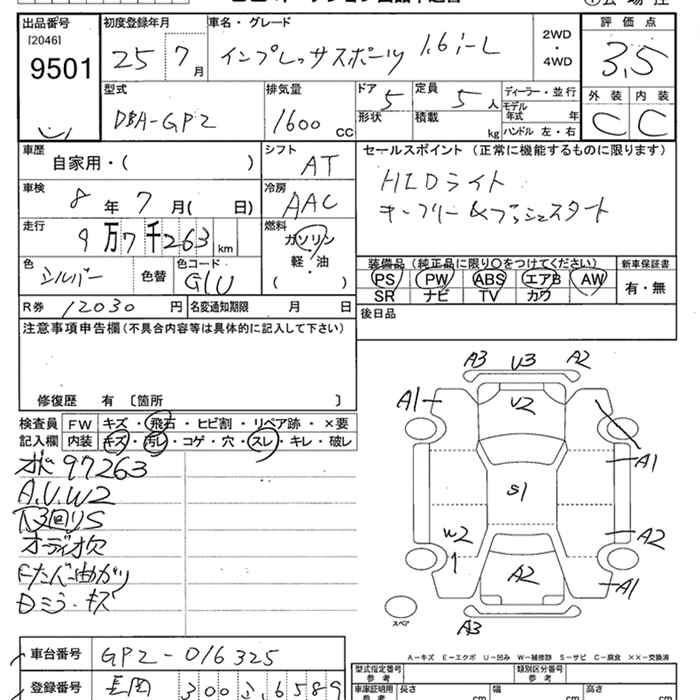 出品番号 初度登録年月 車名・グレード 評価点
[2046]
9501
25 7月 インプレッサスポーツ 1.6 i-L
2WD
・
4WD
3.5
外装 内装
C C
型式 排気量 ドア 定員 ディーラー・並行
DBA-GP2 1600 CC 5 5 人
モデル年式 年
形状 積載 kg ハンドル 左・右
車歴 シフト セールスポイント (正常に機能するものに限ります)
自家用・( ) AT HIDライト
キーフリー&プッシュスタート
車検 冷房
8 年 7 月( 日) AAC
走行 燃料
9万7千263 km ガソリン
軽・油
( )
色 シルバー 色替 色コード G1U
装備品 (純正品に限り○をつけてください) 新車保証書
PS PW ABS エアB AW 有・無
SR ナビ TV カワ
R券 12030 円 名変通知期限 月 日
後日品
注意事項申告欄(不具合内容等は具体的に記入して下さい)
修復歴 有 〔箇所 〕
検査員 FW キズ・飛石・ヒビ割・リペア跡・×要
記入欄 内装 キズ・汚レ・コゲ・穴・スレ・キレ・破レ
97263
A.U.W2
下回りS
オーディオ欠
Dミラーキズ
A3 U3 A2
A1 U2
A1
S1
W2 A2
1
A2 A1
A3
スペア
A-キズ E-エクボ U-凹み W-補修跡 S-サビ C-腐食 ××-交換済
車台番号 GP2-016325
型式指定番号 参考 類別区分番号 参考
登録番号 長岡 300 ふ 6589
車庫証明用 参考 長さ cm 幅 cm 高さ cm